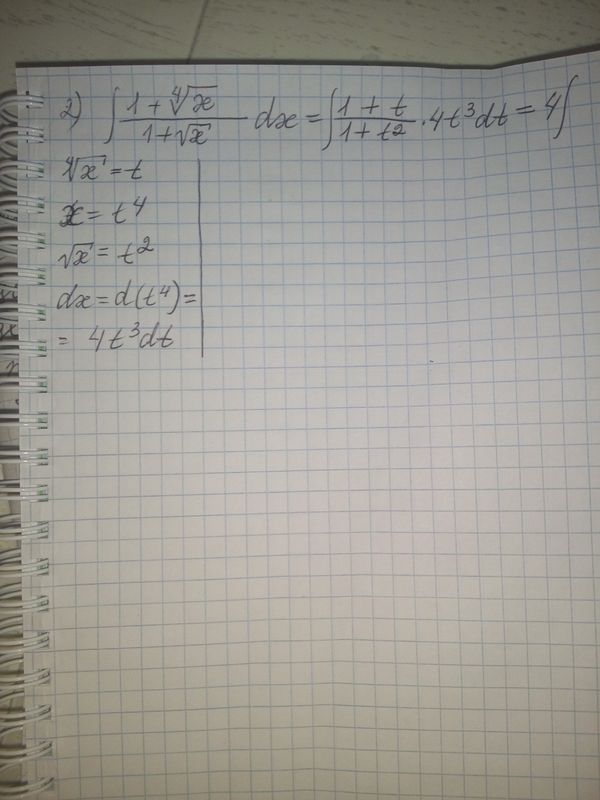 2) ∫ (1 + ∜x)/(1 + √x) dx = ∫ (1 + t)/(1 + t²) · 4t³dt = 4∫
∜x = t
x = t⁴
√x = t²
dx = d(t⁴) =
= 4t³dt